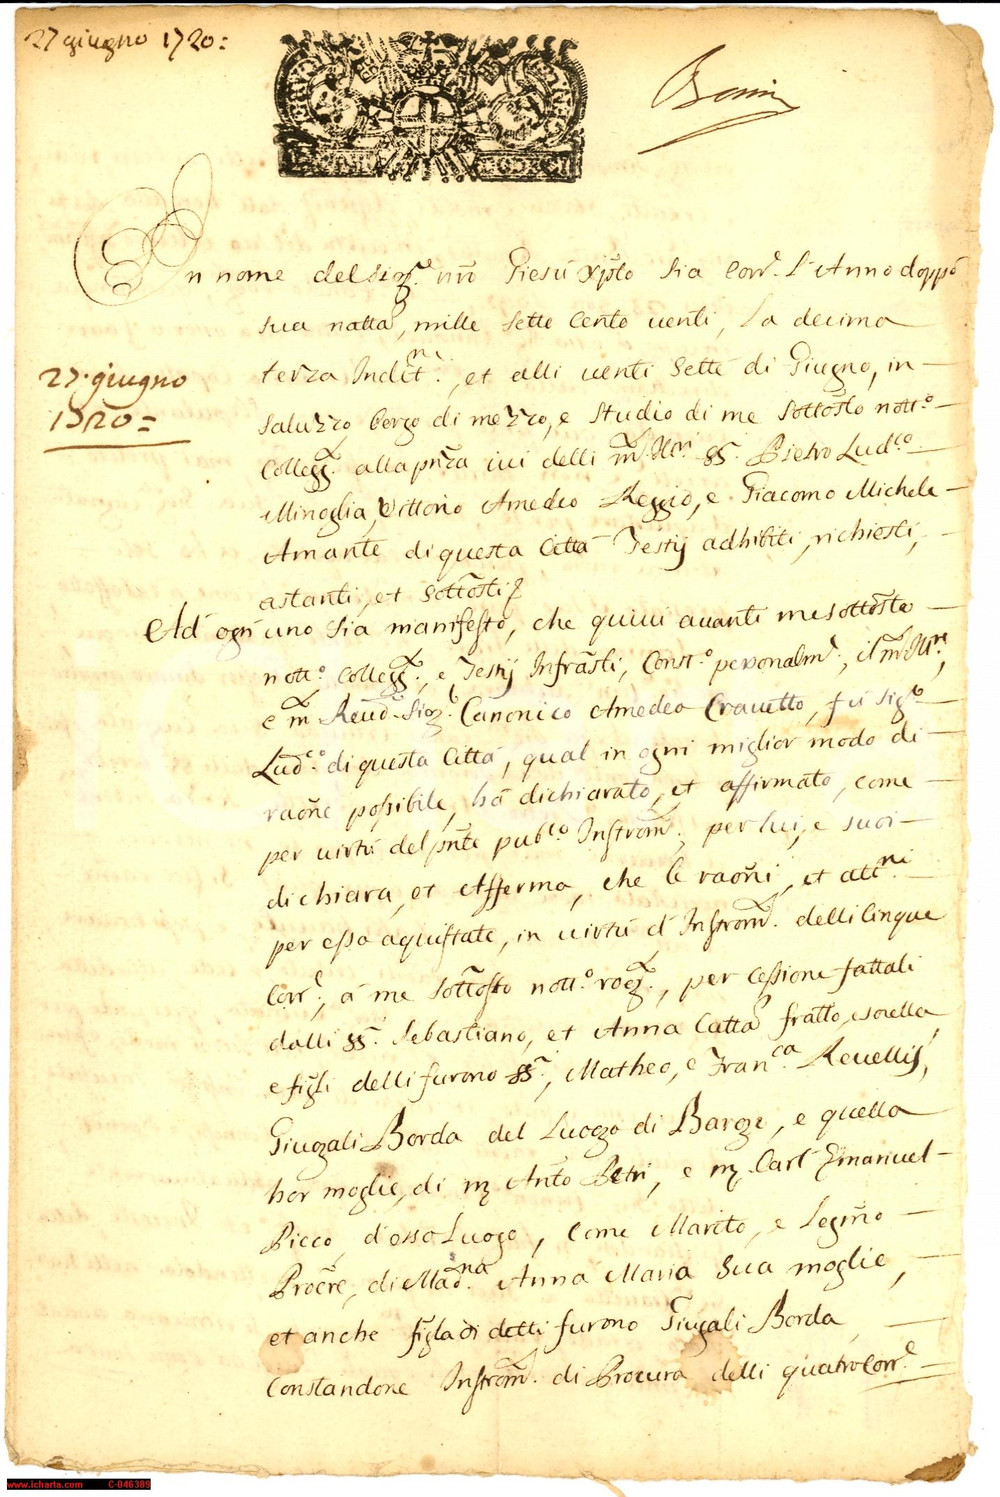 27 giugno 1720:
In nome del Sig.re nro Giesù Xpto sia Corr. L'Anno doppo
sua natta, mille sette cento venti, La decima
27. giugno
1720=
terza Indit.ni, et alli venti sette di Giugno, in
Saluzzo borgo di mezzo, e studio di me sottosto nott.o
Colleg. alla pnza ivi delli m. Ill.ri ss.ri Pietro Lud.co
Minoglia, Vittorio Amedeo Reggio, e Giacomo Michele
Amante di questa Città Testij adhibiti, richiesti,
astanti, et sottosti
Ad' ogni uno sia manifesto, che quivi avanti me sottosto
nott.o Colleg., e Testij Infrasti, Const.o personalm.e, il m.to Ill.re,
e m. Reud.o Sig.r Canonico Amedeo Cravetto, fù Sig.r
Lud.co di questa Città, qual in ogni miglior modo di
raone possibile, hà dichiarato, et affirmato, come
per virtù del pnte pub.co Instrom., per lui, e suoi
dichiara, et Afferma, che le raoni, et att.ni
per esso aquistate, in virtù d'Instrom. delli Cinque
Corr.e, à me sottosto nott.o rog., per Cessione fattali
dalli ss.ri Sebastiano, et Anna Catta fratto, e sorella,
e figli delli furono ss.ri, Matheo, e Fran.ca Revellis,
Giugali Borda del Luogo di Barge, e quello
hor moglie, di m. Anto Petri, e m. Carl' Emanuel
Picco, d'esso Luogo, Come Marito, e Legmo
Procre, di Mad.na Anna Maria sua moglie,
et anche figla di detti furono Giugali Borda,
Constandone Instrom. di Procura delli quatro Corr.e
www.icharta.com C-046389